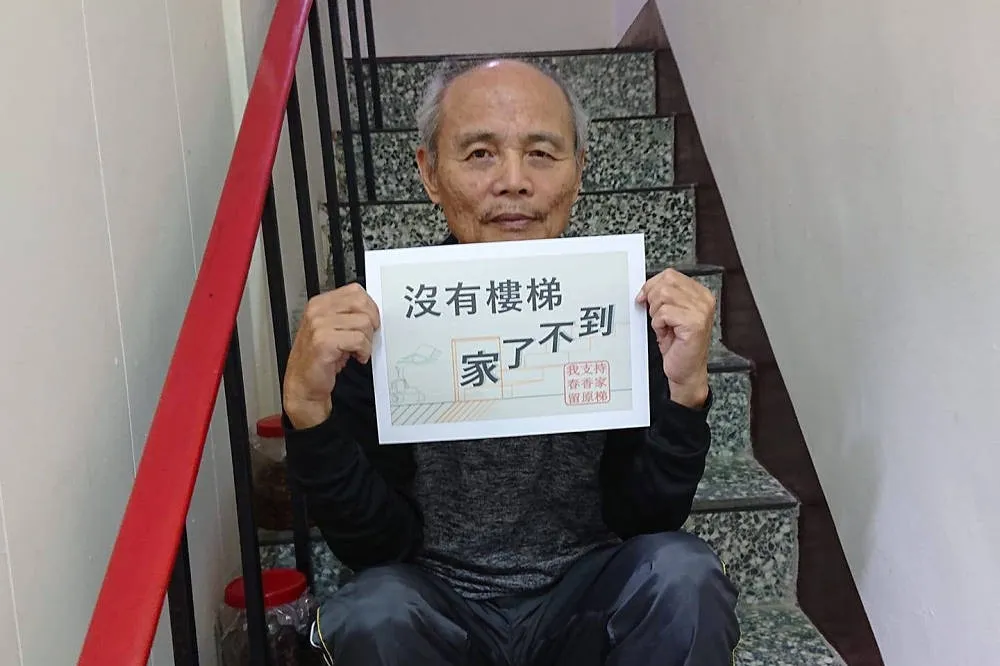 沒有樓梯
到不了家
我支持
春香家
留原梯